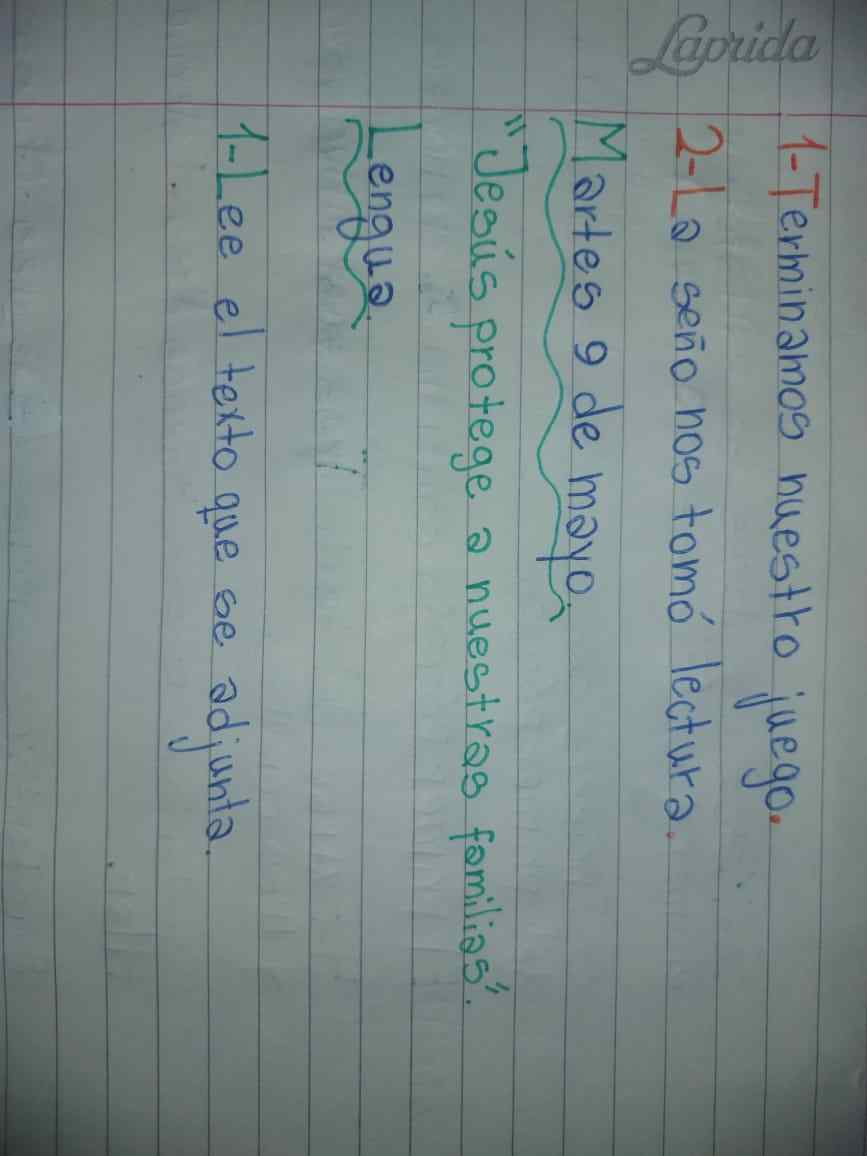 Laprida
1-Terminamos nuestro juego.
2-La seño nos tomó lectura.
Martes 9 de mayo.
"Jesús protege a nuestras familias".
Lengua.
1-Lee el texto que se adjunta.